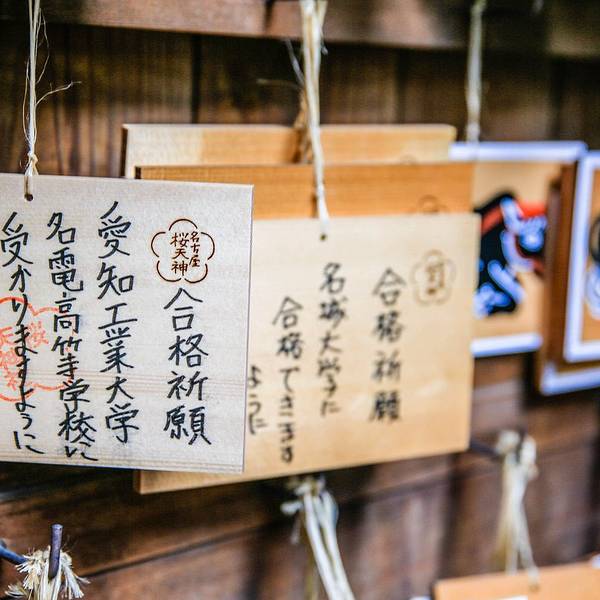 名古屋
桜天神
合格祈願
愛知工業大学
名電高等学校に
受かりますように
合格祈願
名城大学に
合格できます
ように